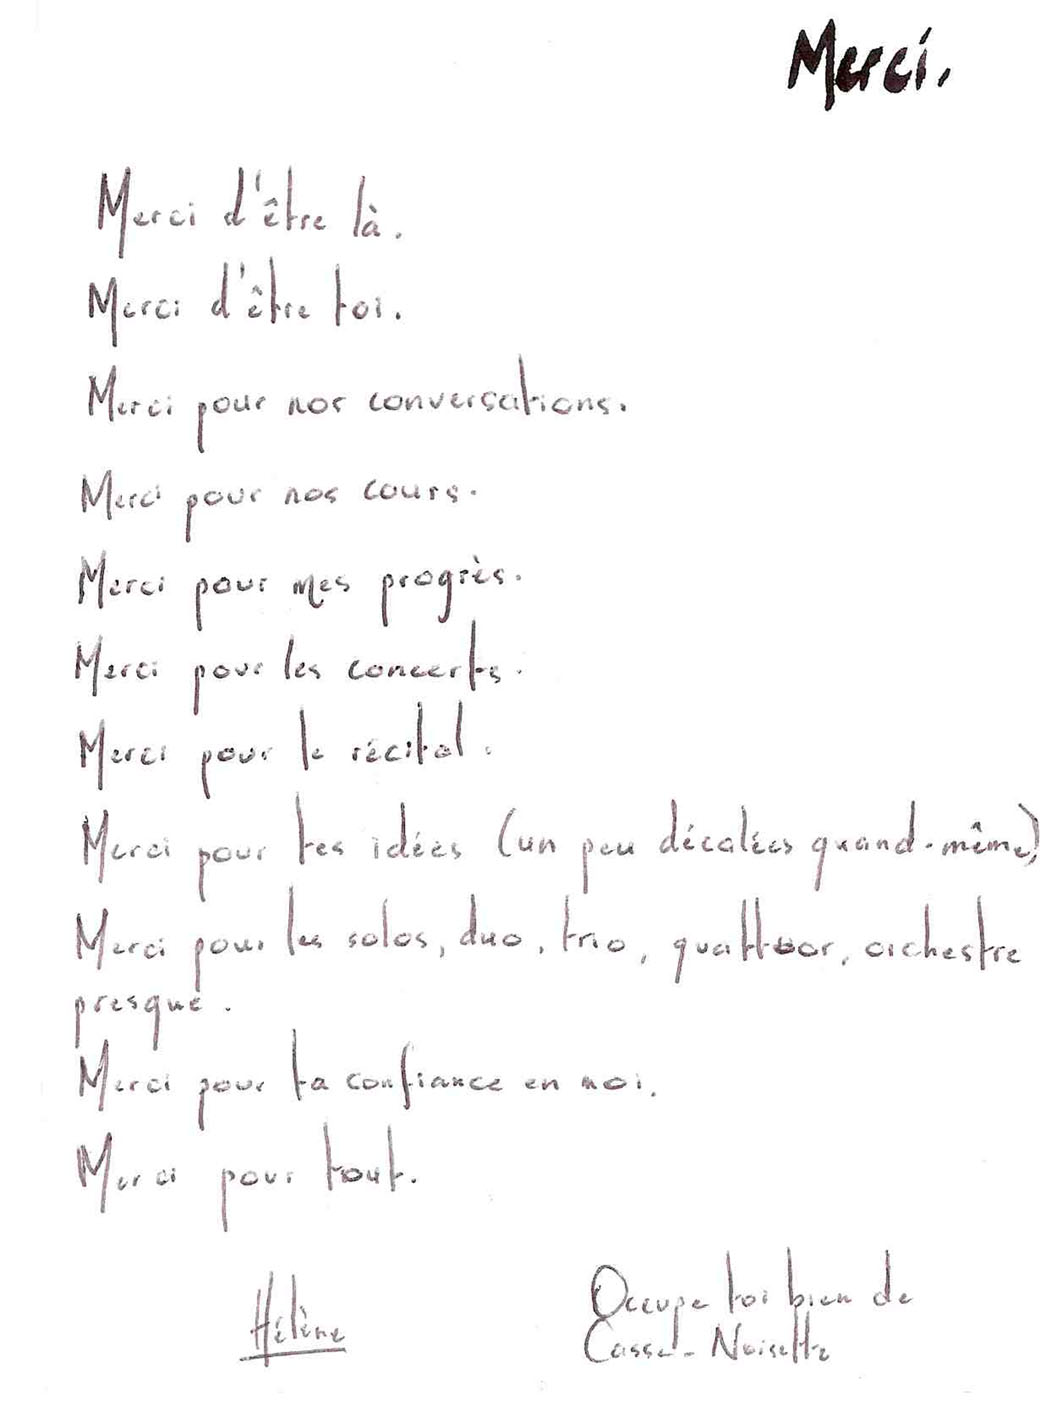 Merci.
Merci d'être là.
Merci d'être toi.
Merci pour nos conversations.
Merci pour nos cours.
Merci pour mes progrès.
Merci pour les concerts.
Merci pour le récital.
Merci pour tes idées (un peu décalées quand-même)
Merci pour les solos, duo, trio, quattuor, orchestre
presque.
Merci pour ta confiance en moi.
Merci pour tout.
Hélène
Occupe toi bien de
Casse-Noisette